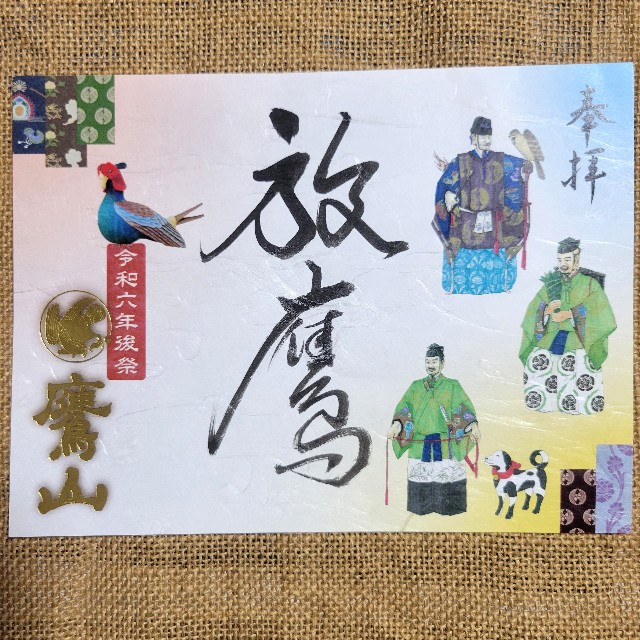 奉拝
放鷹
令和六年後祭
鷹山